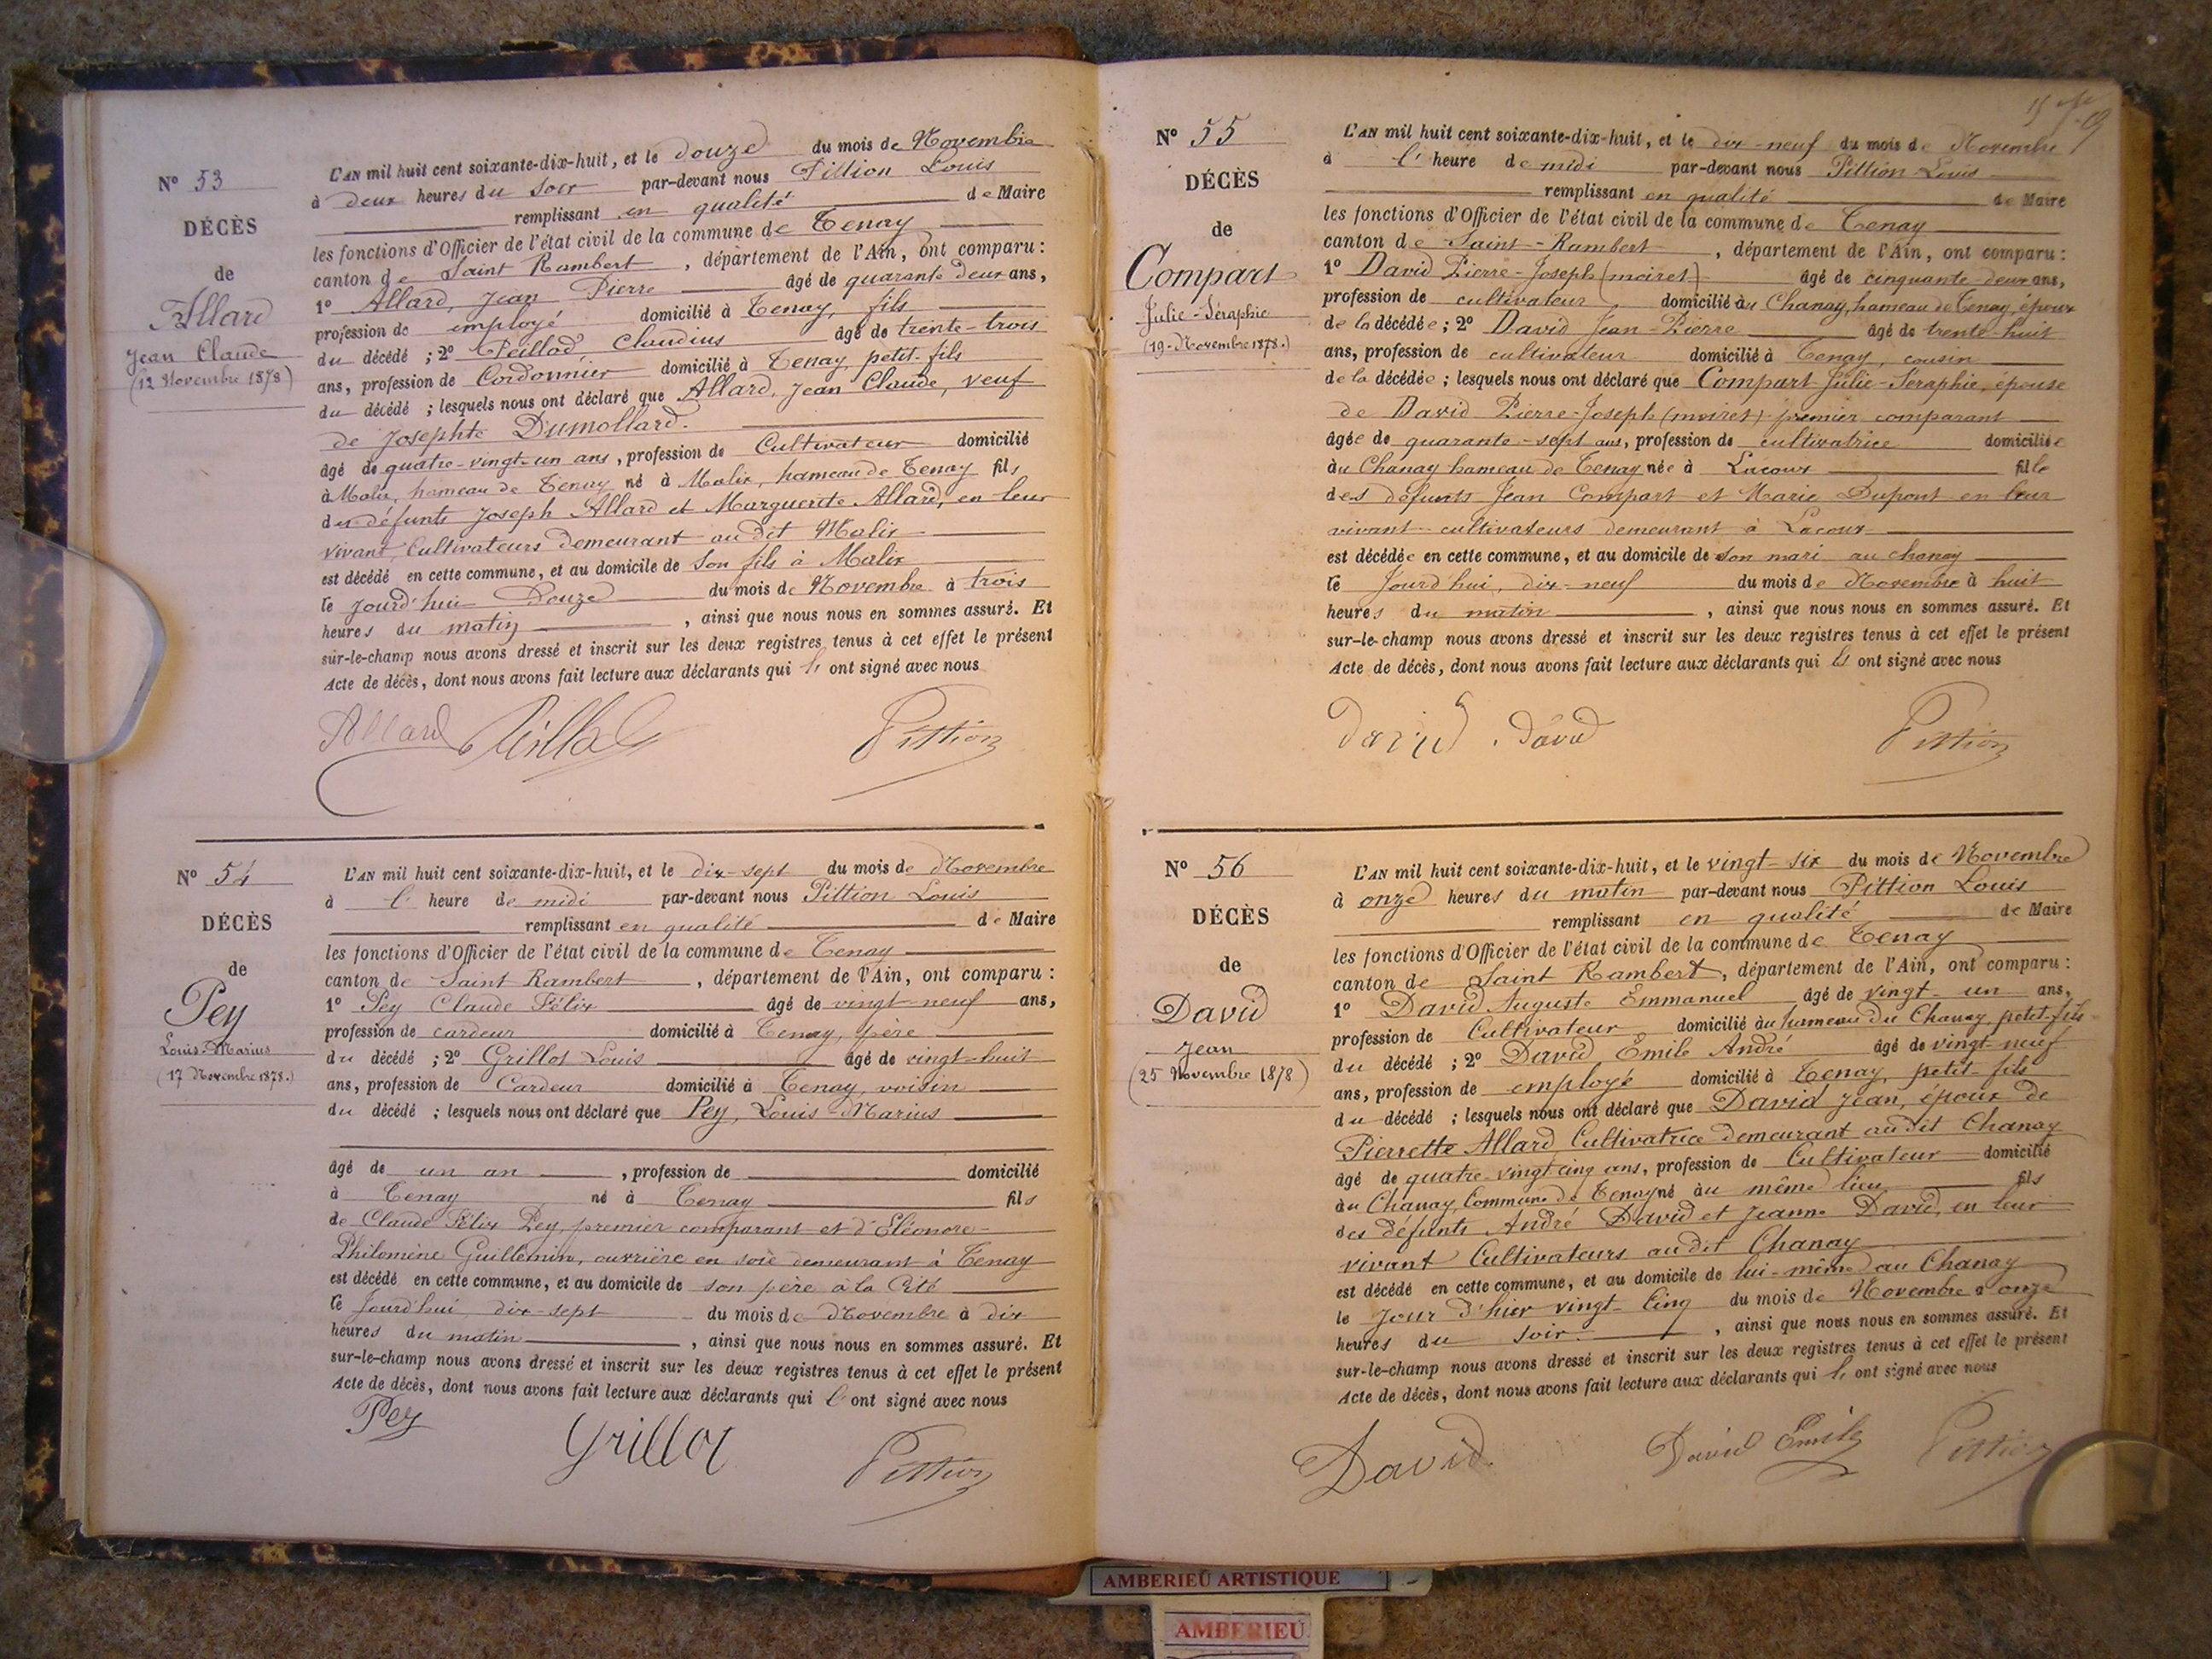 N° 53
DÉCÈS
de
Allard
Jean Claude
(12 Novembre 1878)
L'AN mil huit cent soixante-dix-huit, et le douze du mois de Novembre
à deux heures du soir par-devant nous Pittion Louis
remplissant en qualité de Maire
les fonctions d'Officier de l'état civil de la commune de Tenay
canton de Saint Rambert, département de l'Ain, ont comparu :
1° Allard, Jean Pierre âgé de quarante deux ans,
profession de employé domicilié à Tenay, fils
du décédé ; 2° Peillod, Claudius âgé de trente-trois
ans, profession de Cordonnier domicilié à Tenay, petit-fils
du décédé ; lesquels nous ont déclaré que Allard, Jean Claude, veuf
de Josephte Dumollard.
âgé de quatre-vingt-un ans, profession de Cultivateur domicilié
à Malix, hameau de Tenay né à Malix, hameau de Tenay fils
des défunts Joseph Allard et Marguerite Allard, en leur
vivant Cultivateurs demeurant au dit Malix
est décédé en cette commune, et au domicile de son fils à Malix
le jourd'hui douze du mois de Novembre à trois
heures du matin, ainsi que nous nous en sommes assuré. Et
sur-le-champ nous avons dressé et inscrit sur les deux registres tenus à cet effet le présent
Acte de décès, dont nous avons fait lecture aux déclarants qui l' ont signé avec nous
Allard Peillod Pittion
N° 54
DÉCÈS
de
Pey
Louis-Marius
(17 Novembre 1878.)
L'AN mil huit cent soixante-dix-huit, et le dix-sept du mois de Novembre
à l' heure de midi par-devant nous Pittion Louis
remplissant en qualité de Maire
les fonctions d'Officier de l'état civil de la commune de Tenay
canton de Saint Rambert, département de l'Ain, ont comparu :
1° Pey Claude Félix âgé de vingt-neuf ans,
profession de cardeur domicilié à Tenay, père
du décédé ; 2° Grillot Louis âgé de vingt-huit
ans, profession de Cardeur domicilié à Tenay, voisin
du décédé ; lesquels nous ont déclaré que Pey, Louis-Marius
âgé de un an, profession de domicilié
à Tenay né à Tenay fils
de Claude Félix Pey, premier comparant et d'Eléonore
Philomène Guillemin, ouvrière en soie demeurant à Tenay
est décédé en cette commune, et au domicile de son père à la Cité
le jourd'hui dix-sept du mois de Novembre à dix
heures du matin, ainsi que nous nous en sommes assuré. Et
sur-le-champ nous avons dressé et inscrit sur les deux registres tenus à cet effet le présent
Acte de décès, dont nous avons fait lecture aux déclarants qui l' ont signé avec nous
Pey Grillot Pittion
N° 55
DÉCÈS
de
Compart
Julie-Séraphie
(19-Novembre 1878.)
L'AN mil huit cent soixante-dix-huit, et le dix-neuf du mois de Novembre
à l' heure de midi par-devant nous Pittion Louis
remplissant en qualité de Maire
les fonctions d'Officier de l'état civil de la commune de Tenay
canton de Saint-Rambert, département de l'Ain, ont comparu :
1° David Pierre-Joseph (moiret) âgé de cinquante deux ans,
profession de cultivateur domicilié au Chanay, hameau de Tenay, époux
de la décédée ; 2° David Jean-Pierre âgé de trente-huit
ans, profession de cultivateur domicilié à Tenay, cousin
de la décédée ; lesquels nous ont déclaré que Compart Julie-Séraphie, épouse
de David Pierre-Joseph (moiret) premier comparant
âgée de quarante-sept ans, profession de cultivatrice domiciliée
au Chanay hameau de Tenay née à Lacoux fille
des défunts Jean Compart et Marie Dupont en leur
vivant cultivateurs demeurant à Lacoux
est décédée en cette commune, et au domicile de son mari au chanay
le jourd'hui, dix-neuf du mois de Novembre à huit
heures du matin, ainsi que nous nous en sommes assuré. Et
sur-le-champ nous avons dressé et inscrit sur les deux registres tenus à cet effet le présent
Acte de décès, dont nous avons fait lecture aux déclarants qui l' ont signé avec nous
David . David Pittion
N° 56
DÉCÈS
de
David
Jean
(25 Novembre 1878)
L'AN mil huit cent soixante-dix-huit, et le vingt-six du mois de Novembre
à onze heures du matin par-devant nous Pittion Louis
remplissant en qualité de Maire
les fonctions d'Officier de l'état civil de la commune de Tenay
canton de Saint Rambert, département de l'Ain, ont comparu :
1° David Auguste Emmanuel âgé de vingt-un ans,
profession de Cultivateur domicilié au hameau du Chanay petit-fils
du décédé ; 2° David Emile André âgé de vingt-neuf
ans, profession de employé domicilié à Tenay, petit-fils
du décédé ; lesquels nous ont déclaré que David Jean, époux de
Pierrette Allard Cultivatrice demeurant audit Chanay
âgé de quatre-vingt cinq ans, profession de Cultivateur domicilié
au Chanay, Commune de Tenay né au même lieu fils
des défunts André David et Jeanne David, en leur
vivant Cultivateurs audit Chanay
est décédé en cette commune, et au domicile de lui-même au Chanay
le jour d'hier vingt-cinq du mois de Novembre à onze
heures du soir, ainsi que nous nous en sommes assuré. Et
sur-le-champ nous avons dressé et inscrit sur les deux registres tenus à cet effet le présent
Acte de décès, dont nous avons fait lecture aux déclarants qui l' ont signé avec nous
David David Emile Pittion
AMBERIEU ARTISTIQUE
AMBERIEU